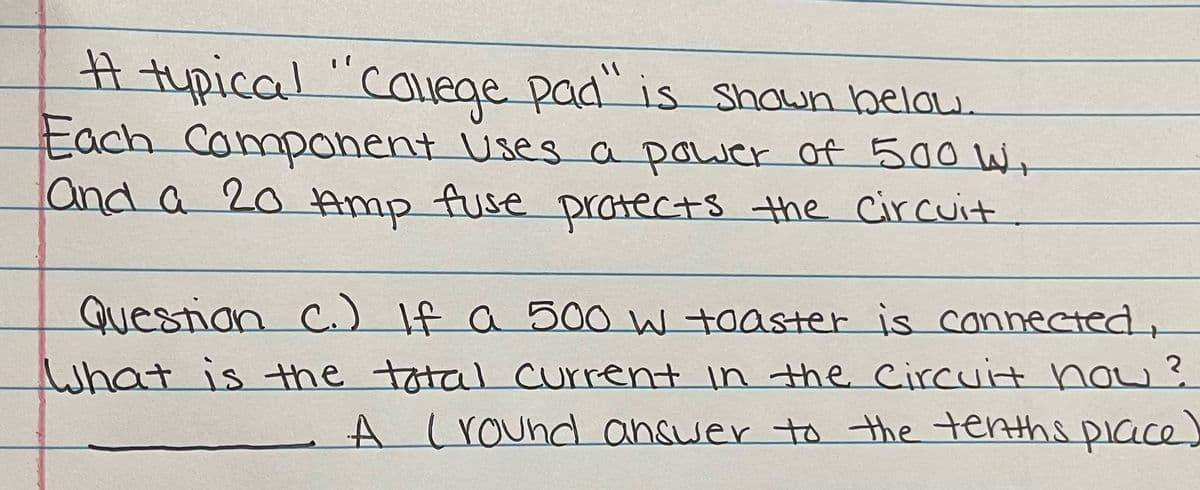 A typical "College pad" is shown below.
Each component uses a power of 500 W,
and a 20 Amp fuse protects the circuit.
Question c.) If a 500 W toaster is connected,
What is the total current in the circuit now?
A (round answer to the tenths place)